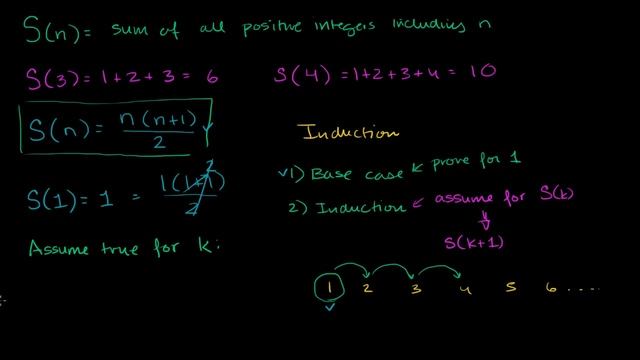 S(n) = sum of all positive integers including n
S(3) = 1+2+3 = 6
S(4) = 1+2+3+4 = 10
S(n) = n(n+1)/2
S(1) = 1 = 1(1+1)/2
2
Assume true for k:
Induction
1) Base case prove for 1
2) Induction assume for S(k)
S(k+1)
1 2 3 4 5 6 ....